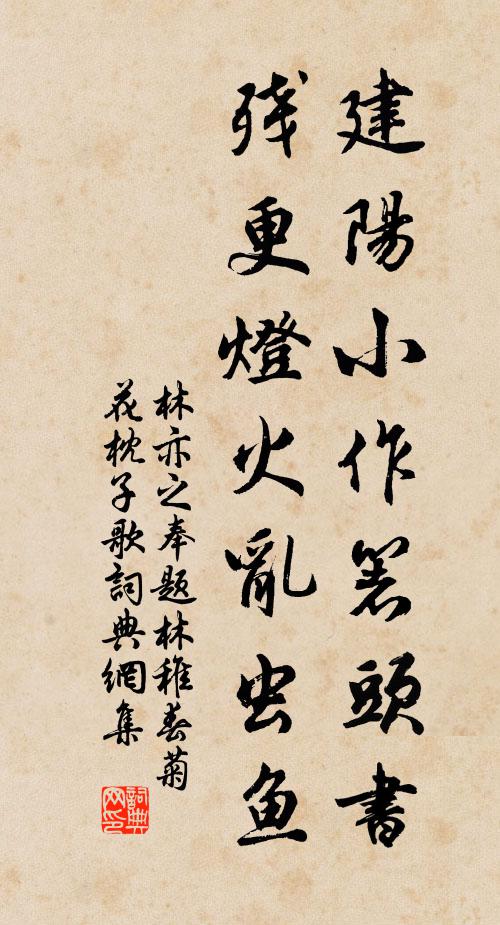 建陽小作箬頭書
残更燈火亂虫魚
林亦之奉題林稚春菊
花枕子歌詞典網集
詞典
网印